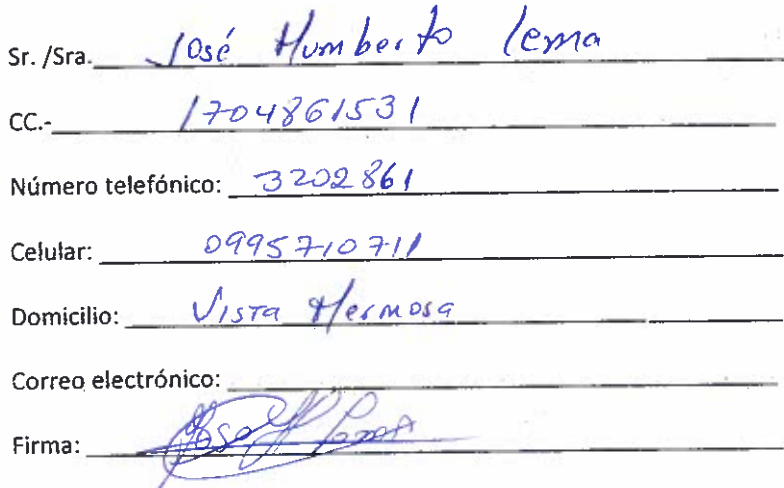 Sr. /Sra. José Humberto Lema
CC.- 1704861531
Número telefónico: 3202861
Celular: 0995710711
Domicilio: Vista Hermosa
Correo electrónico:
Firma: